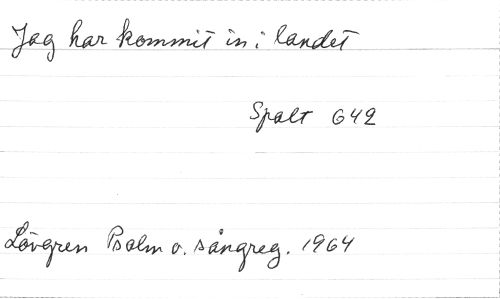 Jag har kommit in i landet
Spalt 642
Lövgren Psalm o. sångreg. 1964